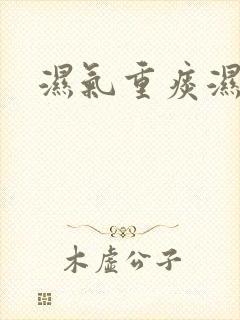 濕氣重痰濕
木虛公子